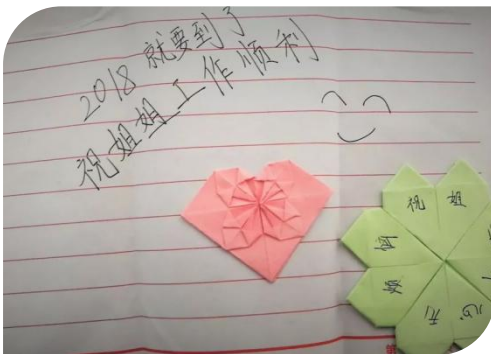 2018 就要到了
祝姐姐工作顺利
祝 姐
心
无
烦